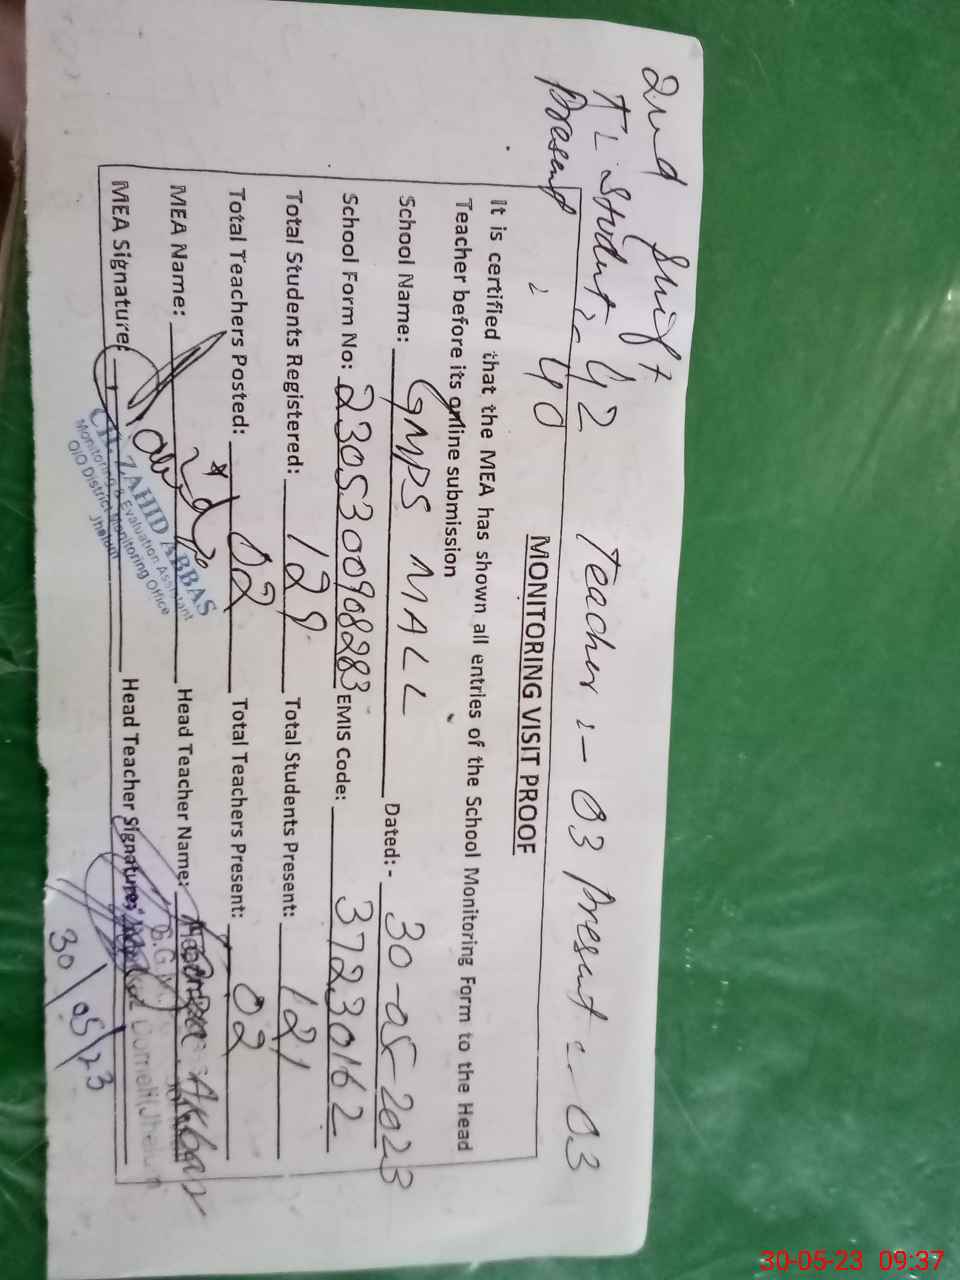 2nd Shift
TL Student :- 42 Teacher :- 03 Present :- 03
Present : 40
MONITORING VISIT PROOF
It is certified that the MEA has shown all entries of the School Monitoring Form to the Head
Teacher before its online submission
School Name: GMPS MALL Dated:- 30-05-2023
School Form No: 2305300908283 EMIS Code: 37230162
Total Students Registered: 129 Total Students Present: 121
Total Teachers Posted: 02 Total Teachers Present: 02
MEA Name: Head Teacher Name: Akbar
MEA Signature: Head Teacher Signature:
CH. ZAHID ABBAS
Monitoring & Evaluation Assistant
O/O District Monitoring Office
Jhelum
Domeli(Jhelum
30/05/23
30-05-23 09:37